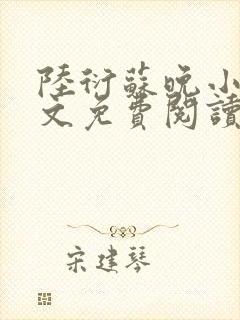 陸衍蘇晚小
文免費閱讀
宋建琴